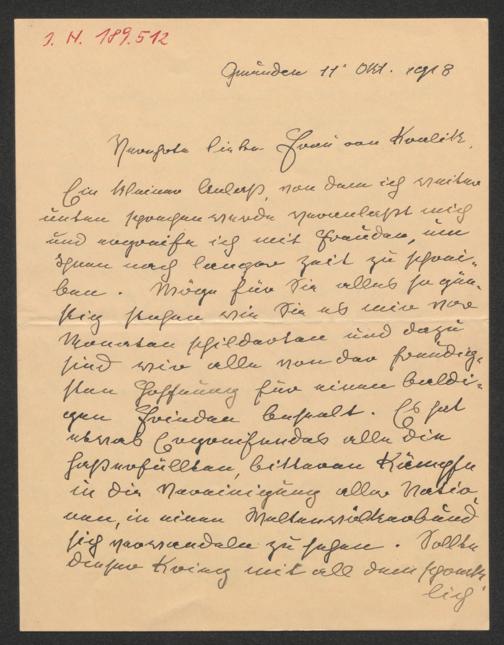 J. N. 189.512
Gmünden 11' Okt. 1918
Verehrte liebe Frau von Kralik,
Ein kleiner Anlaß, von dem ich weiter
unten sprechen werde veranlaßt mich
und ergreife ich mit Freuden, um
Ihnen nach langer Zeit zu schrei-
ben. Möge für Sie alles so gün-
stig stehen wie Sie es mir vor
Monaten schilderten und dazu
sind wir alle von der freudig-
sten Hoffnung für einen baldi-
gen Frieden beseelt. Es hat
etwas Ergreifendes alle die
haßerfüllten, bitteren Kämpfe
in die Vereinigung aller Natio
nen, in einen Weltenvölkerbund
sich verwandeln zu sehen. Sollte
dieser Krieg mit all dem schreck
lich